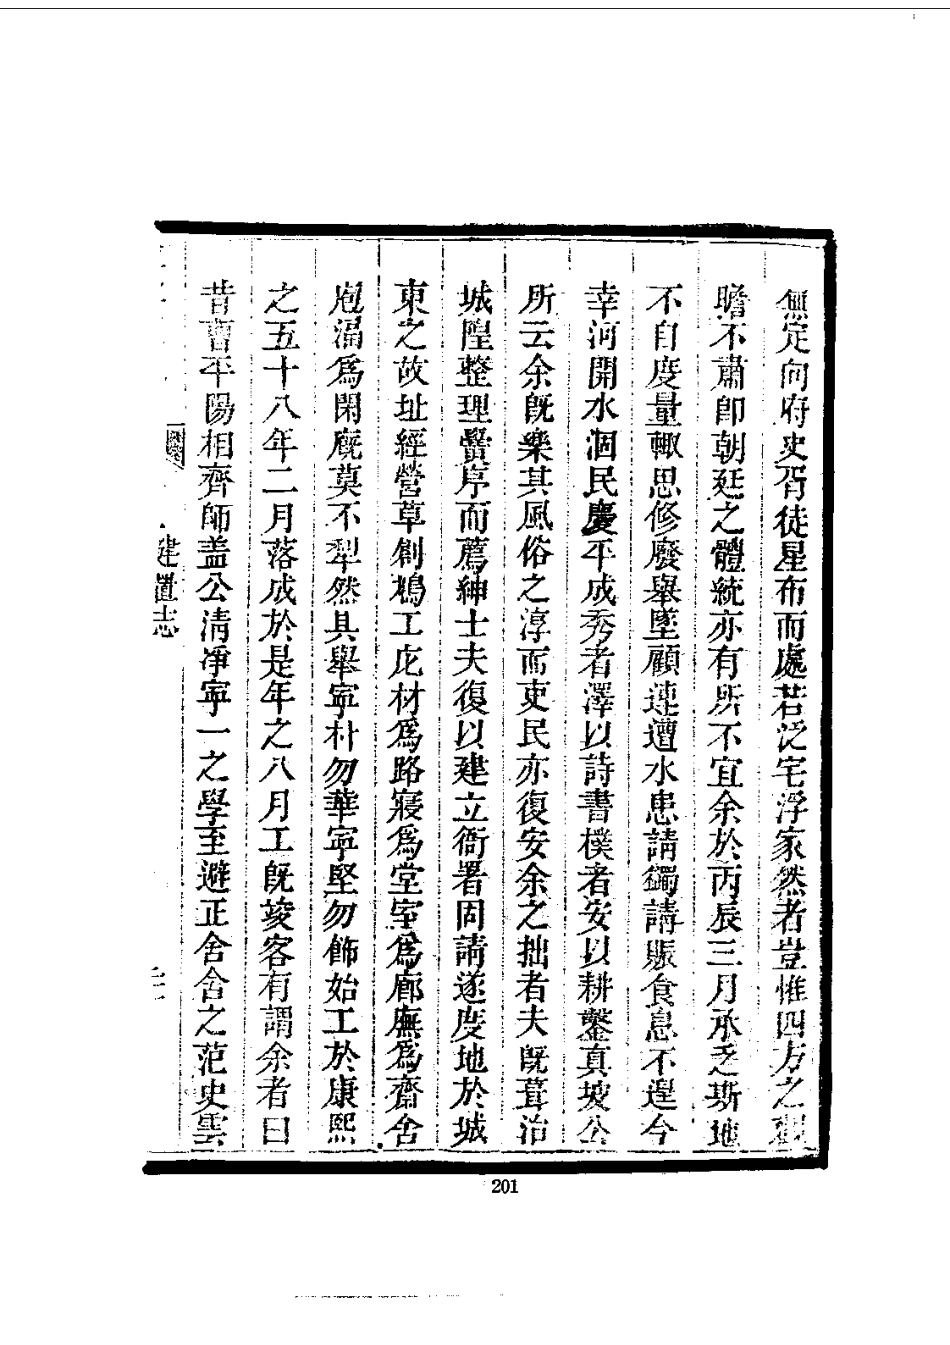 無定向府史胥徒星布而處若泛宅浮家然者豈惟四方之觀
瞻不肅卽朝廷之體統亦有所不宜余於丙辰三月承乏斯地
不自度量輙思修廢舉墜顧連遭水患請蠲請賑食息不遑今
幸河開水涸民慶平成秀者澤以詩書樸者安以耕鑿真坡公
所云余旣樂其風俗之淳而吏民亦復安余之拙者夫旣葺治
城隍整理黌序而薦紳士夫復以建立衙署固請遂度地於城
東之故址經營草創鳩工庀材爲路寢爲堂室爲廊廡爲齋舍
庖湢爲閑廐莫不犁然具舉寧朴勿華寧堅勿飾始工於康熙
之五十八年二月落成於是年之八月工旣竣客有謂余者曰
昔曹平陽相齊師盖公清凈寧一之學至避正舍舍之范史雲
建置志
201